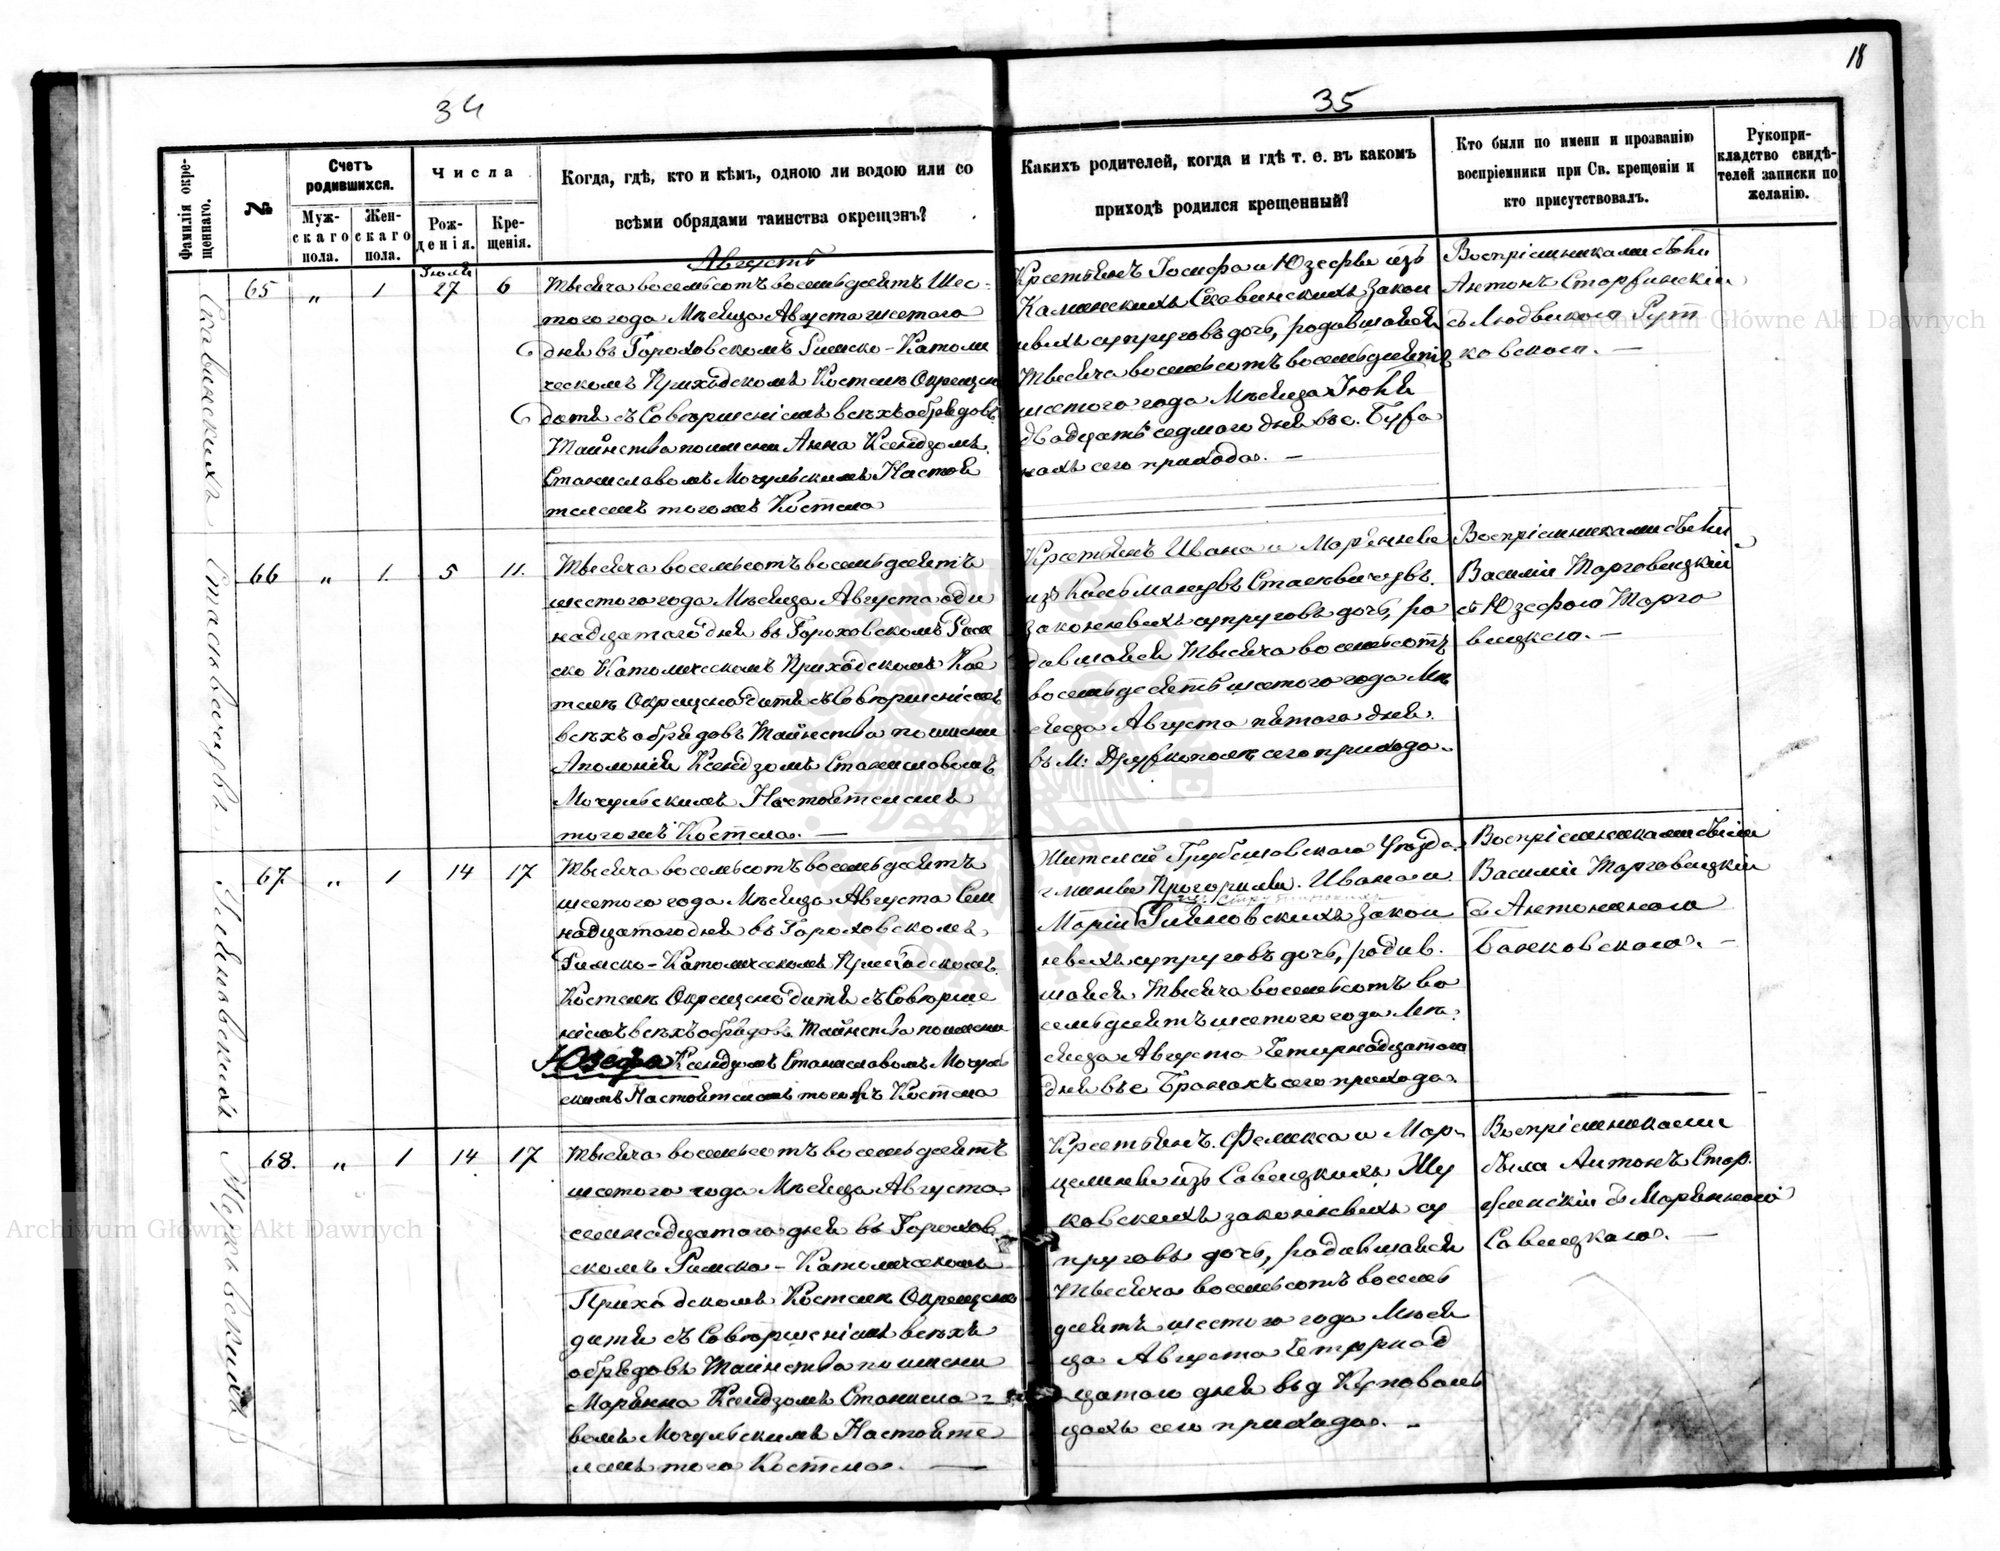 18
34
35
Фамилія окрещеннаго.
№
Счетъ родившихся.
Мужскаго пола.
Женскаго пола.
Числа
Рожденія.
Крещенія.
Когда, гдѣ, кто и кѣмъ, одною ли водою или со
всѣми обрядами таинства окрещэнъ?
Какихъ родителей, когда и гдѣ т. е. въ каком
приходѣ родился крещенный?
Кто были по имени и прозванію
воспріемники при Св. крещеніи и
кто присутствовалъ.
Рукопри-
кладство свидѣ-
телей записки по
желанію.
Скавинскихъ
65 „ 1 Іюля 27 6
Августъ
Тысяча восемьсотъ восемьдесятъ шес-
того года Мѣсяца Августа шестого
дня въ Гороховскомъ Римско-Катали
ческомъ Приходскомъ Костелѣ Окрещено
дитя съ Совершеніемъ всѣхъ обрядовъ
Таинства по имени Анна Ксендзомъ
Станиславомъ Мочульскимъ Настоя
телемъ того жъ Костела
Крестьянъ Іосифа и Юзефы изъ
Каминскихъ Скавинскихъ Закон
ныхъ супруговъ дочь, родившаяся
Тысяча восемьсотъ восемьдесятъ
шестого года Мѣсяца Іюля
двадцать седмого дня въ с.
нахъ сего прихода. —
Воспріемниками были
Антонъ
съ Людвикою Рут
ковскою. —
66 „ 1. 5 11.
Тысяча восемьсотъ восемьдесятъ
шестого года Мѣсяца Августа оди
надцатого дня въ Гороховскомъ Рим
ско Католическомъ Приходскомъ Кос
телѣ Окрещено дитя съ Совершеніемъ
всѣхъ обрядовъ Таинства по имени
Аполонія Ксендзомъ Станиславомъ
Мочульскимъ Настоятелемъ
того жъ Костела. —
Крестьянъ Ивана и Марьянны
изъ
законныхъ супруговъ дочь, ро
дившаяся Тысяча восемьсотъ
восемьдесятъ шестого года Мѣ
сяца Августа пятого дня
въ М: Дружкополѣ сего прихода.
Воспріемниками были
Василій Торговицкій
съ Юзефою Торго
вицкою. —
67. „ 1 14 17
Тысяча восемьсотъ восемьдесятъ
шестого года Мѣсяца Августа Сем
надцатого дня въ Гороховскомъ
Римско-Католическомъ Приходскомъ
Костелѣ Окрещено дитя съ Соверше
ніемъ всѣхъ обрядовъ Таинства по имени
Юзефа Ксендзомъ Станиславомъ Мочуль
скимъ Настоятелемъ того жъ Костела
Жителей Грубешовского Уѣзда
гмины Ивана и
Маріи законн
ныхъ супруговъ дочь, родив.
шаяся Тысяча восемьсотъ во
семьдесятъ шестого года Мѣ
сяца Августа Четырнадцатого
дня въ с сего прихода.
Воспріемниками были
Василій Торговицкій
съ Антониною
Банковскою. —
68. „ 1 14 17
Тысяча восемьсотъ восемьдесятъ
шестого года Мѣсяца Августа
семнадцатого дня въ Горохов
скомъ Римско-Католическомъ
Приходскомъ Костелѣ Окрещено
дитя съ Совершеніемъ всѣхъ
обрядовъ Таинства по имени
Марянна Ксендзомъ Станисла-
вомъ Мочульскимъ Настояте
лемъ того Костела. —
Крестьянъ Феликса и Мар-
целины изъ Савицкихъ Жу
ковскихъ законныхъ су
пруговъ дочь, родившаяся
Тысяча восемьсотъ восемь
десятъ шестого года Мѣся
ца Августа Четырнад
цатого дня въ д
цахъ сего прихода. —
Воспріемниками
были Антонъ
съ Марьянною
Савицкою. —
Archiwum Główne Akt Dawnych
Archiwum Główne Akt Dawnych